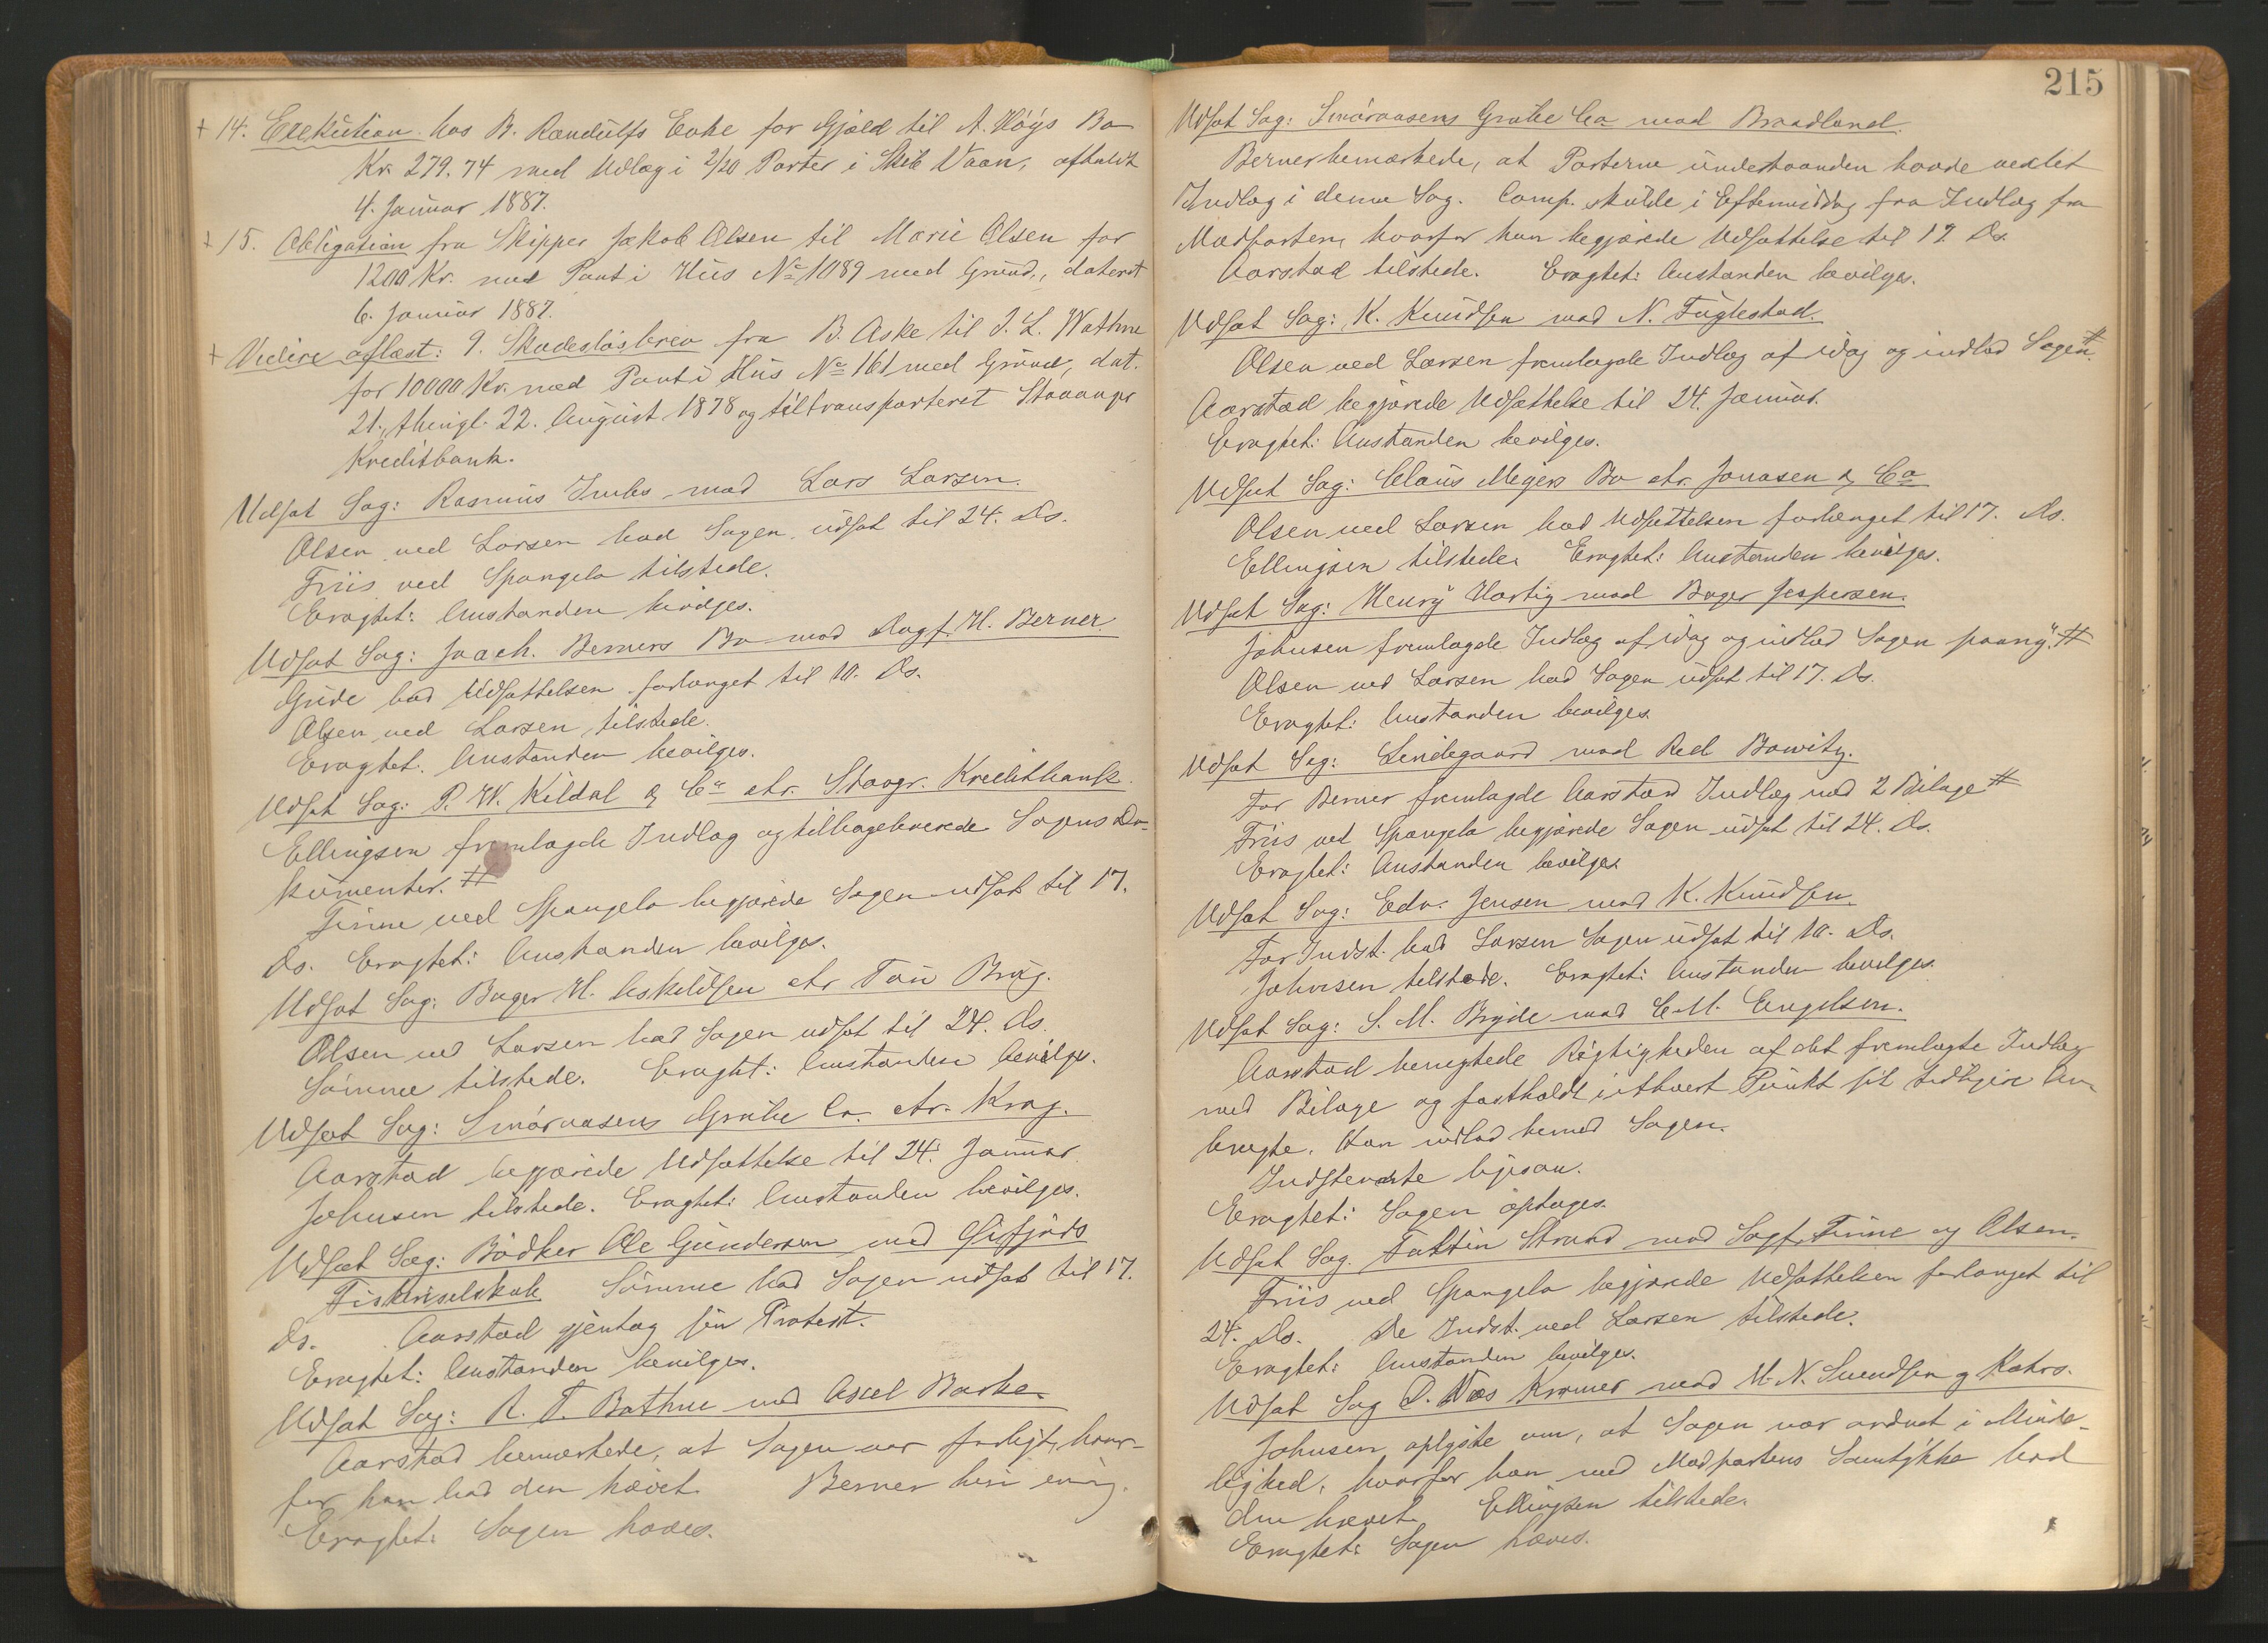 + 14. Exekution hos B. Randulfs Enke for Gjæld til A. Höys Bo
Kr. 279.74 med Udlæg i 2/20 Parter i Skib Vaan, afholdt
4. Januar 1887.
+ 15. Obligation fra Skipper Jakob Olsen til Marie Olsen for
1200 Kr. med Pant i Hus No 1089 med Grund, dateret
6. Januar 1887.
+ Videre aflæst: 9. Skadeslösbrev fra B. Aske til J. L. Wathne
for 10000 Kr. med Pant i Hus No 161 med Grund, dat.
21., thingl. 22. August 1878 og tiltransporteret Stavanger
Kreditbank.
Udsat Sag: Rasmus Imbs mod Lars Larsen.
Olsen ved Larsen bad Sagen udsat til 24. Ds.
Friis ved Spangelo tilstede.
Eragtet: Anstanden bevilges.
Udsat Sag: Joach. Berners Bo mod Sagf. H. Berner.
Gude bad Udsættelsen forlænget til 10. Ds.
Olsen ved Larsen tilstede.
Eragtet. Anstanden bevilges.
Udsat Sag: P. W. Kildal & Co ctr. Stavgr. Kreditbank.
Ellingsen fremlagde Indlæg og tilbageleverede Sagens Do-
kumenter. #
Finne ved Spangelo begjærede Sagen udsat til 17.
Ds. Eragtet: Anstanden bevilges.
Udsat Sag: Bager H. Askildsen ctr Tau Brug.
Olsen ved Larsen bad Sagen udsat til 24. Ds.
Sömme tilstede. Eragtet: Anstanden bevilges.
Udsat Sag: Smöraasens Grube Co. ctr. Krag.
Aarstad begjærede Udsættelse til 24. Januar.
Johnsen tilstede. Eragtet: Anstanden bevilges.
Udsat Sag: Bödker Ole Gundersen mod Öifjords
Fiskeriselskab Sömme bad Sagen udsat til 17.
Ds. Aarstad gjentog sin Protest.
Eragtet: Anstanden bevilges.
Udsat Sag: R. T. Bathne mod Axel Barke.
Aarstad bemærkede, at Sagen var forligt, hvor-
for han bad den hævet. Berner heri enig.
Eragtet: Sagen hæves.
215
Udsat Sag: Smöraasens Grube Co mod Braadland.
Berner bemærkede, at Parterne underhaanden havde vexlet
Indlæg i denne Sag. Comp. skulde i Eftermiddag faa Indlæg fra
Modparten, hvorfor han begjærede Udsættelse til 17. Ds.
Aarstad tilstede. Eragtet: Anstanden bevilges.
Udsat Sag: K. Knudsen mod N. Fuglestad.
Olsen ved Larsen fremlagde Indlæg af idag og indlod Sagen. #
Aarstad begjærede Udsættelse til 24. Januar.
Eragtet: Anstanden bevilges.
Udsat Sag: Claus Meyers Bo ctr. Jonasen & Co
Olsen ved Larsen bad Udsættelsen forlænget til 17. Ds.
Ellingsen tilstede. Eragtet: Anstanden bevilges.
Udsat Sag: Henry Hartig mod Bager Jespersen.
Johnsen fremlagde Indlæg af idag og indlod Sagen paany. #
Olsen ved Larsen bad Sagen udsat til 17. Ds.
Eragtet: Anstanden bevilges.
Udsat Sag: Lindegaard mod Red Bowitz.
For Berner fremlagde Aarstad Indlæg med 2 Bilage #
Friis ved Spangelo begjærede Sagen udsat til 24. Ds.
Eragtet: Anstanden bevilges.
Udsat Sag: Edv. Jensen mod K. Knudsen.
For Indst. bad Larsen Sagen udsat til 10. Ds.
Johnsen tilstede. Eragtet: Anstanden bevilges.
Udsat Sag: S. M. Bryde mod C. M. Engelsen.
Aarstad benegtede Rigtigheden af det fremlagte Indlæg
med Bilage og fastholdt i ethvert Punkt sit tidligere An-
bragte. Han indlod hermed Sagen.
Indstevnte ligesaa.
Eragtet: Sagen optages.
Udsat Sag. Faktin Strand mod Sagf. Finne og Olsen.
Friis ved Spangelo begjærede Udsættelsen forlænget til
24. Ds. De Indst. ved Larsen tilstede.
Eragtet: Anstanden bevilges.
Udsat Sag D. Næs Kramer mod M. N. Svendsen & Kahrs.
Johnsen oplyste om, at Sagen var ordnet i Minde-
lighed, hvorfor han med Modpartens Samtykke bad
den hævet. Ellingsen tilstede.
Eragtet: Sagen hæves.